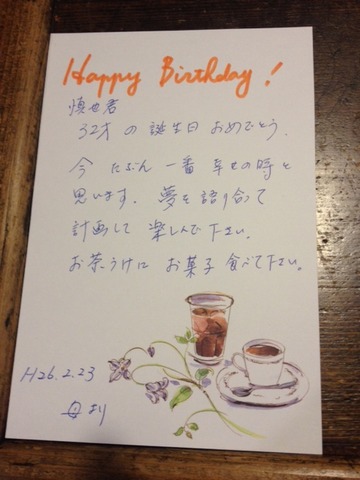 Happy Birthday!
慎也君
32才の誕生日おめでとう.
今たぶん一番幸せの時と
思います. 夢を語り合って
計画して楽しんで下さい.
お茶うけにお菓子食べて下さい。
H26.2.23
母より